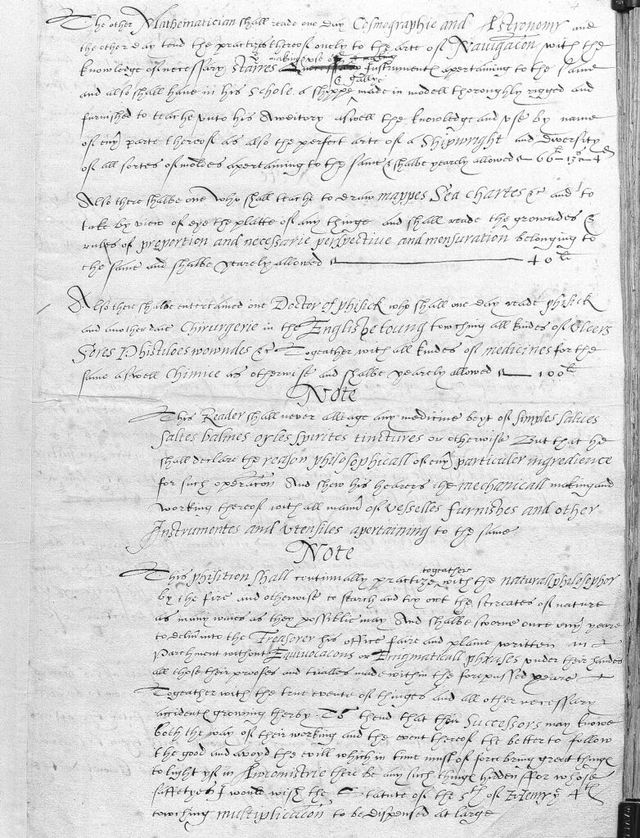 The other Mathematician shall reade one day Cosmographie and Astronomy and
the other day tend the practize thereof onely to the arte of Navigacon with the
knowledge of necessary starres making use of Instrumentes apertaining to the same
and also shall have in his Schole a shippe & gallye made in modell thoroughly rigged and
furnished to teache unto his Auditory aswell the knowledge and use by name
of euery parte thereof as also the perfect arte of a Shipwright and diversity
of all sortes of moldes apertaining to the same & shalbe yearely allowed 66li 13s 4d
Also there shalbe one who shall teache to draw mappes Sea chartes &c and to
take by view of eye the platte of any thinge and shall reade the growndes &
rules of proportion and necessarie perspective and mensuration belonging to
the same and shalbe yearely allowed 40li
Also there shalbe entertained one Doctor of phisick who shall one day reade phisick
and another daie Chirurgerie in the Englishe toung towching all kindes of Ulcers
Sores Phistiloes wowndes &c Togeather with all kindes of medicines for the
same aswell Chimice as otherwise and shalbe yearely allowed 100li
Note
This Reader shall never alleage any medicine be yt of simples salves
saltes balmes oyles spirites tinctures or otherwise But that he
shall declare the reason philosophicall of euery particuler ingredience
for such operacon And shew his hearers the mechanicall making and
working thereof with all manner of vesselles furnishes and other
Instrumentes and Utensiles apertaining to the same
Note
This phisition shall continually practize togeather with the naturall philosophor
by the fire and otherwise to search and try out the secreates of nature
as many waies as they possiblie may And shalbe sworne once every yeare
to deliver into the Treasorer his office faire and plaine written in
Parchment without Equivocacons or Enigmaticall phrases under their handes
all those their proofes and trialles made within the forepassed yeare
Togeather with the true evente of thinges and all other necessary
accidents growing therby To thend that their Successors may knowe
both the way of their working and the event thereof the better to follow
the good and avoyd the evill which in time must of force bring great thinges
to light yf in Awcomistrie there be any such thinge hidden ffor whose
saffetye I would wish the Statute of the 5th of H 4th
towching multiplicacon to be dispensed at large